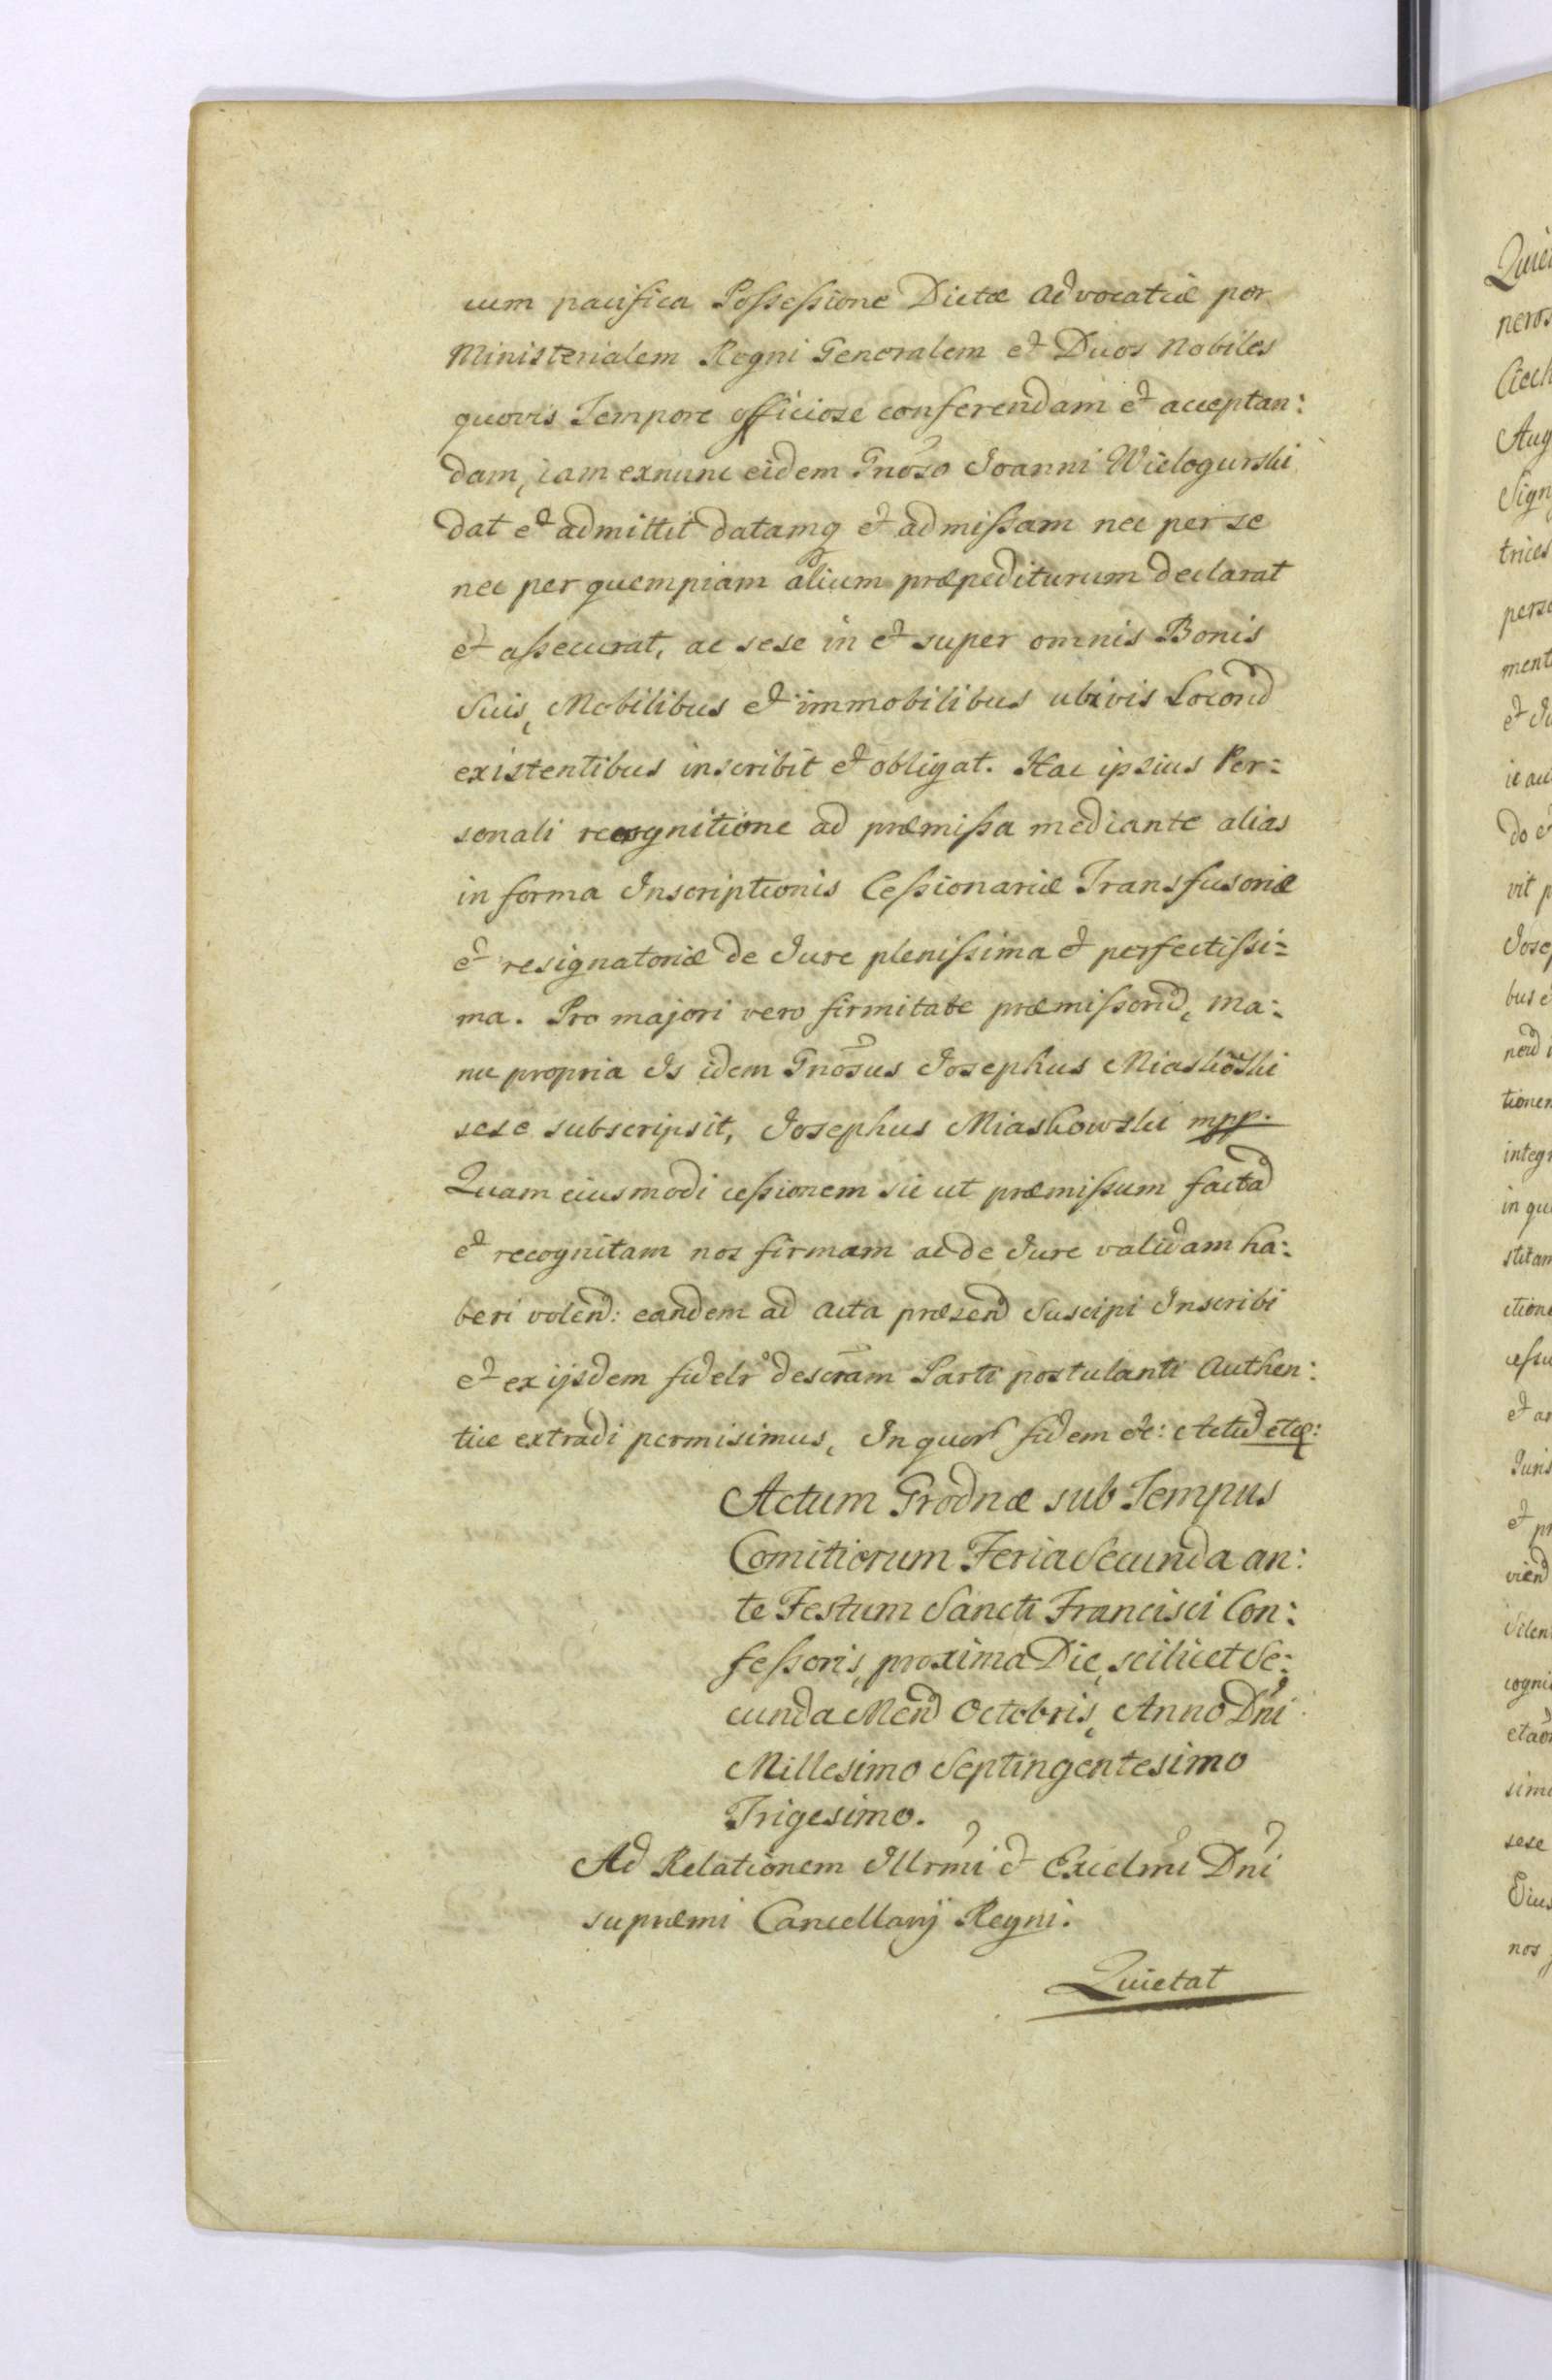 cum pacifica Possessione Dictæ Advocatiæ per
Ministerialem Regni Generalem et Duos Nobiles
quovis Tempore officiose conferendam et acceptan:
dam, iam exnunc eidem Gnoso Joanni Wielogurski
dat et admittit datamq et admissam nec per se
nec per quempiam alium præpediturum declarat
et assecurat, ac sese in et super omnis Bonis
Suis, Mobilibus et immobilibus ubivis Locord
existentibus inscribit et obligat. Hac ipsius Per:
sonali recognitione ad præmissa mediante alias
in forma Inscriptionis Cessionariæ Transfusoriæ
et resignatoriæ de Jure plenissima et perfectissi:
ma. Pro majori vero firmitate præmissord, ma:
nu propria Is idem Gnosus Josephus Miaskoski
sese subscripsit, Josephus Miaskowski mpp.
Quam eiusmodi cessionem sic ut præmissum factad
et recognitam nos firmam ac de Jure validam ha:
beri volend: eandem ad acta præsend Suscipi Inscribi
et ex ijsdem fidelr descram Parti postulanti Authen:
tice extradi permisimus, In quor fidem etc: Actud etc:
Actum Grodnæ sub Tempus
Comitiorum Feria Secunda an:
te Festum Sancti Francisci Con:
fessoris, proxima Die, scilicet Se:
cunda Mend Octobris, Anno Dni
Millesimo Septingentesimo
Trigesimo.
Ad Relationem Illrmi et Excelmi Dni
supræmi Cancellarij Regni.
Quietat